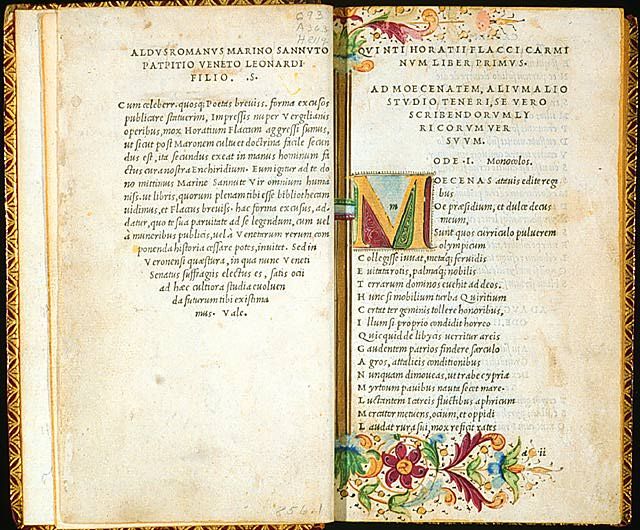 693
A363
ALDVS ROMANVS MARINO SANNVTO
PATPITIO VENETO LEONARDI
FILIO. .S.
Cum celeberr. quosq; Poetas breuiss. forma excusos
publicare statuerim, Impressis nuper Vergilianis
operibus, mox Horatium Flaccum aggressi sumus,
ut sicut post Maronem cultu et doctrina facile secun
dus est, ita secundus exeat in manus hominum fa
ctus cura nostra Enchiridion. Eum igitur ad te do
no mittimus Marine Sannute Vir omnium huma
niss. ut libris, quorum plenam tibi esse bibliothecam
uidimus, et Flaccus breuiss. hac forma excusus, ad-
datur, quo te sua paruitate ad se legendum, cum uel
à muneribus publicis, uel à Venetarum rerum com
ponenda historia cessare potes, inuitet. Sed in
Veronensi quæstura, in qua nunc Veneti
Senatus suffragiis electus es, satis ocii
ad hæc cultiora studia euoluen
da futurum tibi existima
mus. Vale.
256.1
QVINTI HORATII FLACCI CARMI
NVM LIBER PRIMVS.
AD MOECENATEM, ALIVM ALIO
STVDIO TENERI, SE VERO
SCRIBENDORVM LY
RICORVM VER
SVVM.
ODE .I. Monocolos.
M
m
OECENAS atauis edite regi
bus
Oe præsidium, et dulce decus
meum,
Sunt quos curriculo puluerem
olympicum
Collegisse iuuat, metaq; feruidis
Euitata rotis, palmaq; nobilis
Terrarum dominos euehit ad deos.
Hunc si mobilium turba Quiritium
Certat ter geminis tollere honoribus,
Illum si proprio condidit horreo
Quicquid de libycis uerritur areis
Gaudentem patrios findere sarculo
Agros, attalicis conditionibus
Nunquam dimoueas, ut trabe cypria
Myrtoum pauidus nauta secet mare.
Luctantem Icareis fluctibus aphricum
Mercator metuens, ocium, et oppidi
Laudat rura sui, mox reficit rates
a ii